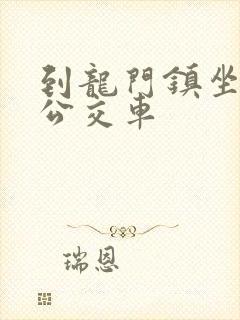 到龍門鎮坐
公交車
瑞恩